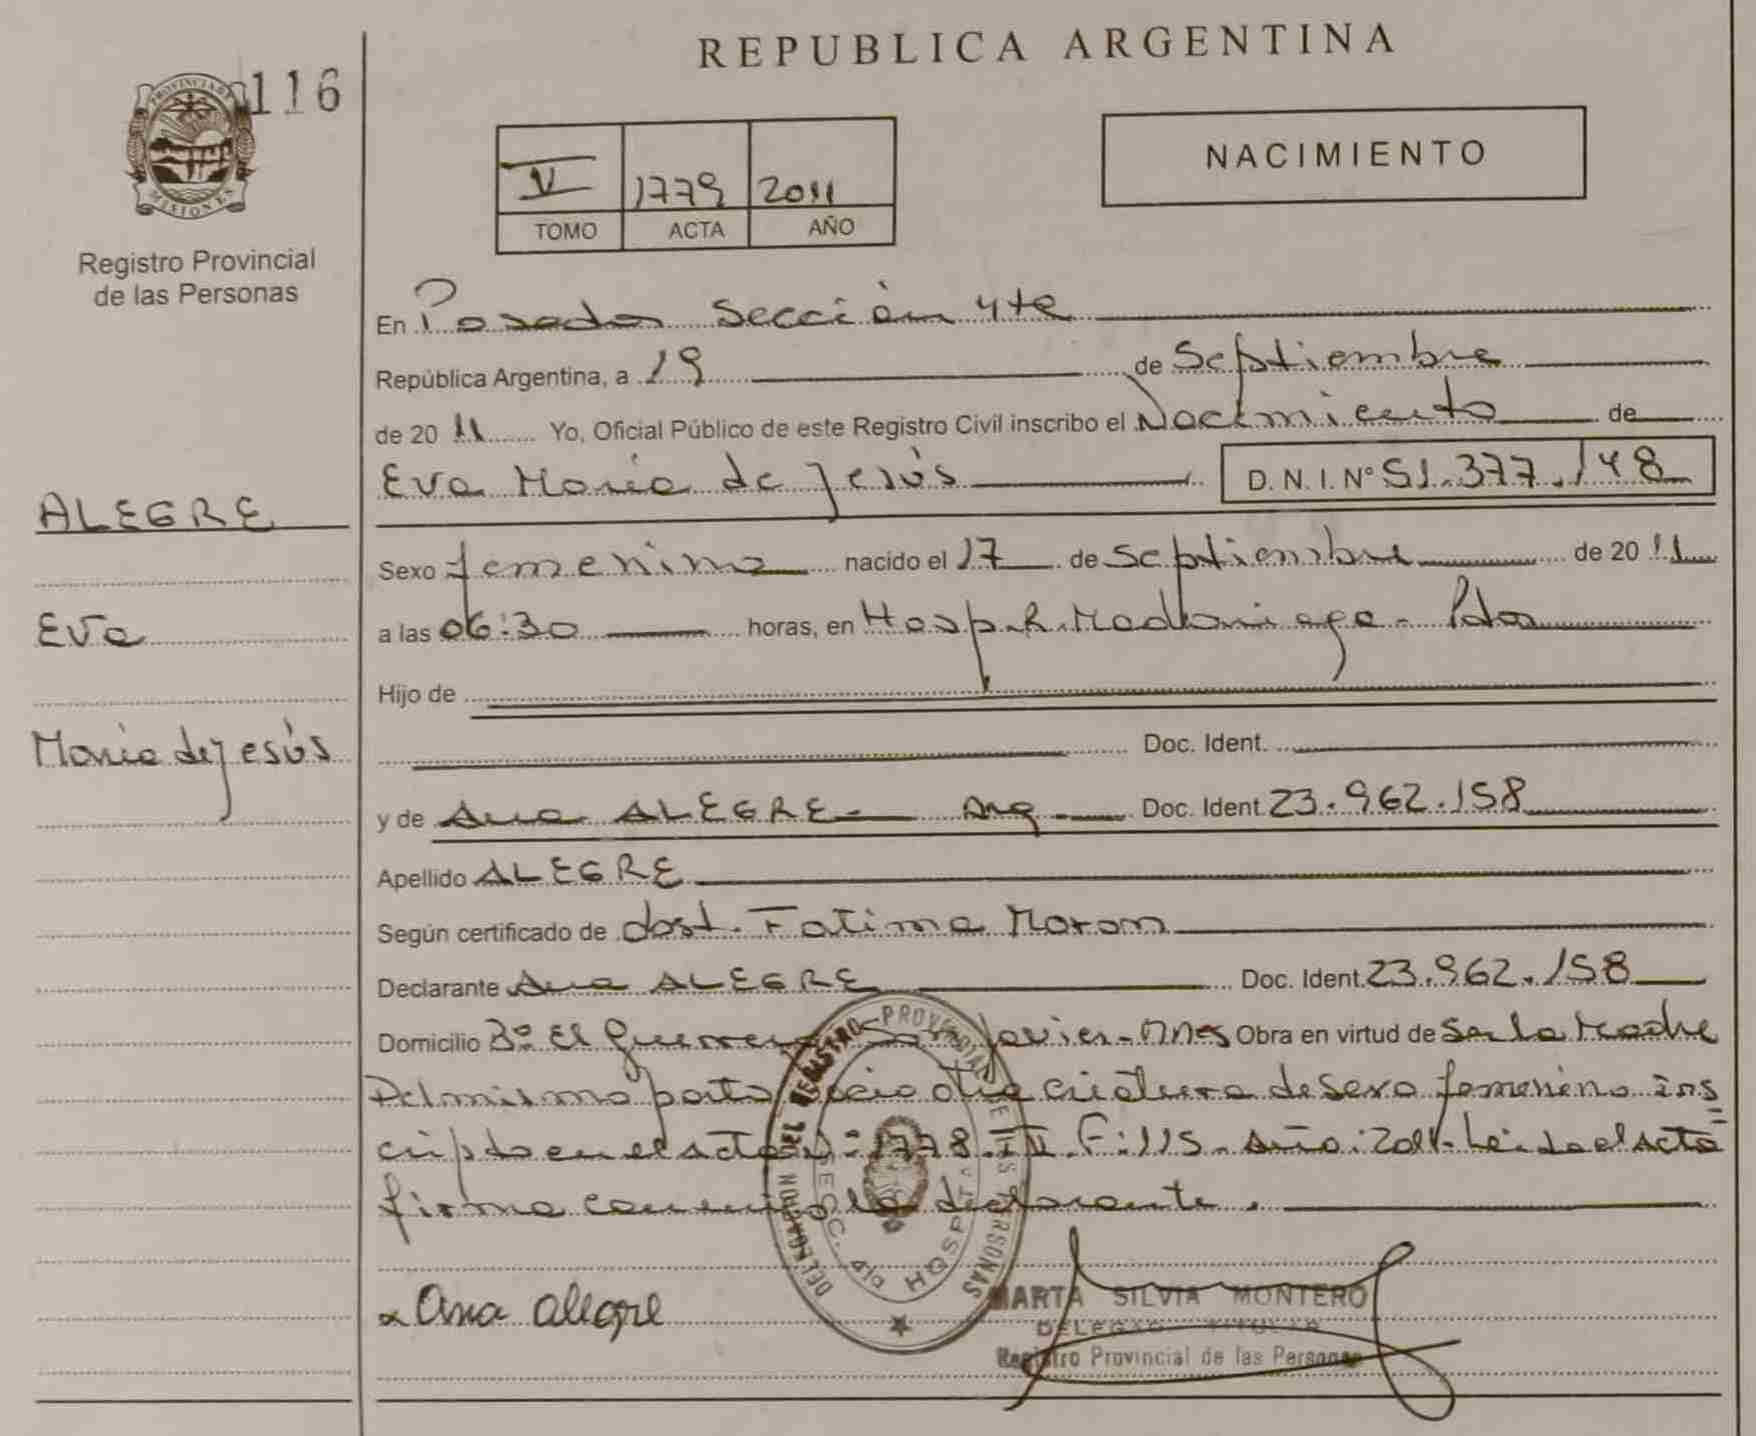 REPUBLICA ARGENTINA
116
PROVINCIA DE
MISIONES
Registro Provincial
de las Personas
NACIMIENTO
V 1779 2011
TOMO ACTA AÑO
En Posadas Sección 4ta
República Argentina, a 19 de Septiembre
de 20 11 Yo, Oficial Público de este Registro Civil inscribo el Nacimiento de
Eva María de Jesús D. N. I. Nº 51.377.148
ALEGRE
Eva
María de Jesús
Sexo femenino nacido el 17 de Septiembre de 20 11
a las 06:30 horas, en Hosp. R. Madariaga - Pdas
Hijo de
Doc. Ident.
y de Ana ALEGRE - Arg - Doc. Ident. 23.962.158
Apellido ALEGRE
Según certificado de obst. Fatima Moron
Declarante Ana ALEGRE Doc. Ident. 23.962.158
Domicilio Bº El Guerrero San Javier - Mnes Obra en virtud de Ser la Madre
Del mismo parto nació otra criatura de sexo femenino ins
cripto en el acta Nº: 1778 - T V. F: 115 - Año: 2011 - Leída el Acta
firma conmigo la declarante.
DELEGACION DEL REGISTRO PROVINCIAL DE LAS PERSONAS
SECC. 4ta HOSPT.
x Ana Alegre
MARTA SILVIA MONTERO
DELEGADO TITULAR
Registro Provincial de las Personas